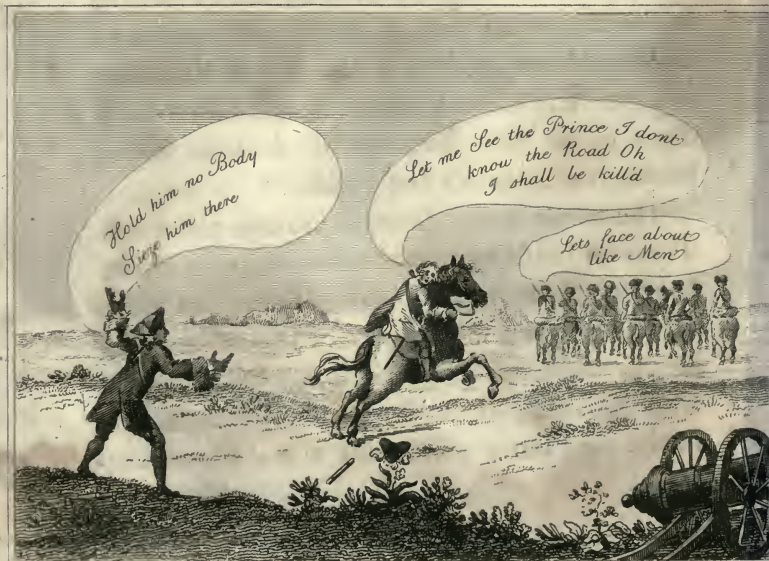 Hold him no Body
Sieze him there
Let me See the Prince I dont
know the Road Oh
I shall be kill'd
Lets face about
like Men